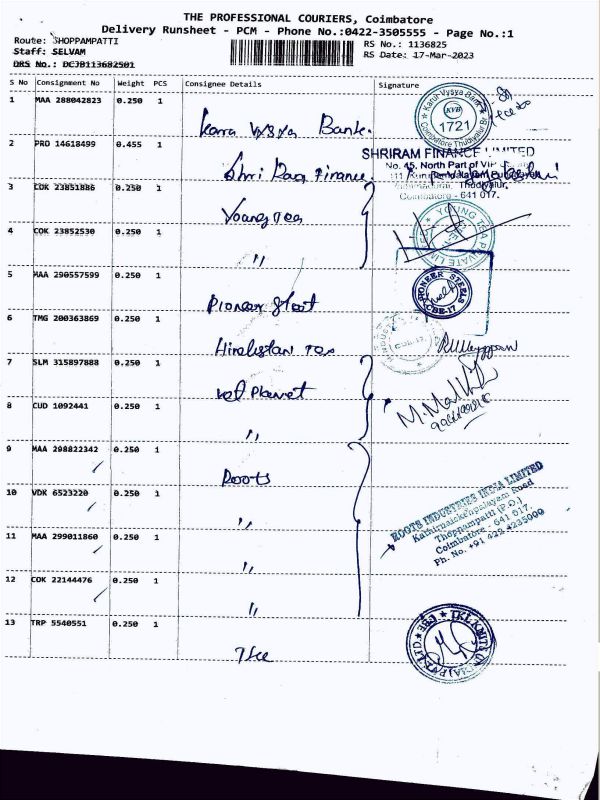 THE PROFESSIONAL COURIERS, Coimbatore
Delivery Runsheet - PCM - Phone No.:0422-3505555 - Page No.:1
Route: SHOPPAMPATTI
Staff: SELVAM
DRS No.: DCJB113682501
RS No.: 1136825
RS Date: 17-Mar-2023
S No Consignment No Weight PCS Consignee Details Signature
1 MAA 288042823 0.250 1
Karur Vysya Bank
1721
2 PRO 14618499 0.455 1 Shri Ram Finance
SHRIRAM FINANCE LIMITED
No. 45, North Part of VIP
Thudiyalur,
Coimbatore - 641 017.
3 COK 23851886 0.250 1 Young Tea
YOUNG TEA PRIVATE LIMITED
4 COK 23852530 0.250 1 "
5 MAA 290557599 0.250 1 Pioneer Steel
PIONEER STEELS
CBE-17
6 TMG 200363869 0.250 1 Hindustan Tea
CBE-17
7 SLM 315897888 0.250 1 vet Planet
8 CUD 1092441 0.250 1 "
9 MAA 298822342 0.250 1 Roots
10 VDK 6523220 0.250 1 "
ROOTS INDUSTRIES INDIA LIMITED
Kathirnaickenpalayam Road
Thoppampatti (P.O.)
Coimbatore - 641 017.
Ph. No. +91 422 4235000
11 MAA 299011860 0.250 1 "
12 COK 22144476 0.250 1 "
13 TRP 5540551 0.250 1